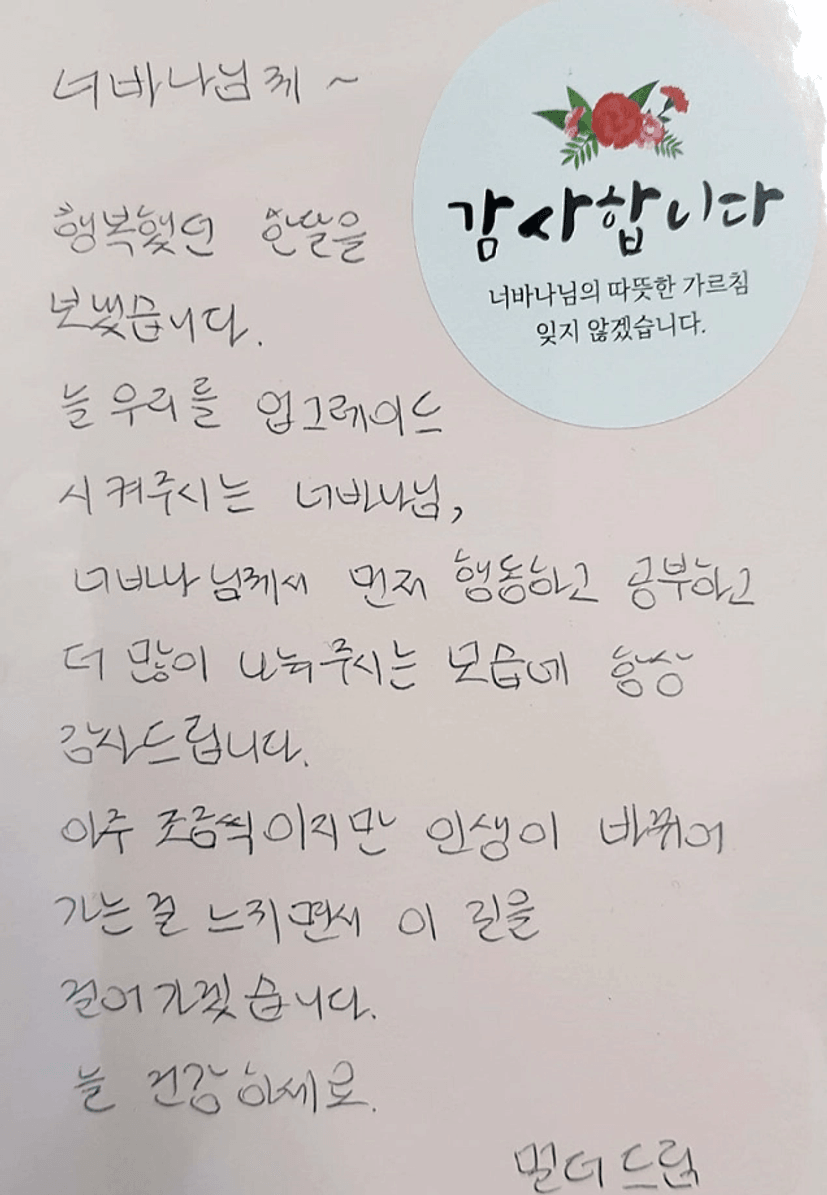 너바나님께 ~
감사합니다
너바나님의 따뜻한 가르침
잊지 않겠습니다.
행복했던 한달을
보냈습니다.
늘 우리를 업그레이드
시켜주시는 너바나님,
너바나님께서 먼저 행동하고 공부하고
더 많이 나눠주시는 모습에 항상
감사드립니다.
아주 조금씩이지만 인생이 바뀌어
가는걸 느끼면서 이 길을
걸어가겠습니다.
늘 건강하세요.
멀더 드림